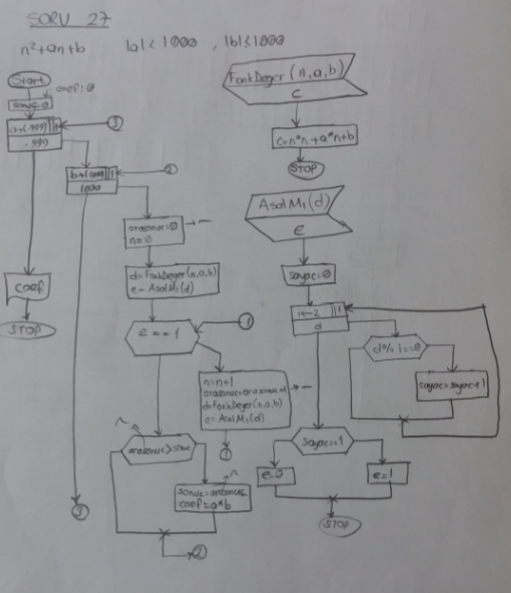 SORU 27
n²+an+b |a|<1000 , |b|≤1000
Start
coef=0
sonuc=0
-999
1
1000
3
2
arasonuc=0
n=0
d=FonkDeger(n,a,b)
e=AsalMı(d)
e==1
1
n=n+1
d=FonkDeger(n,a,b)
e=AsalMı(d)
1
n
arasonuc>sonuc
n
sonuc=arasonuc
coef=a*b
2
3
coef
STOP
FonkDeger(n,a,b)
c
c=n*n+a*n+b
STOP
AsalMı(d)
e
sayac=0
i←2
1
d
d%i==0
sayac=sayac+1
sayac=1
e=0
e=1
STOP